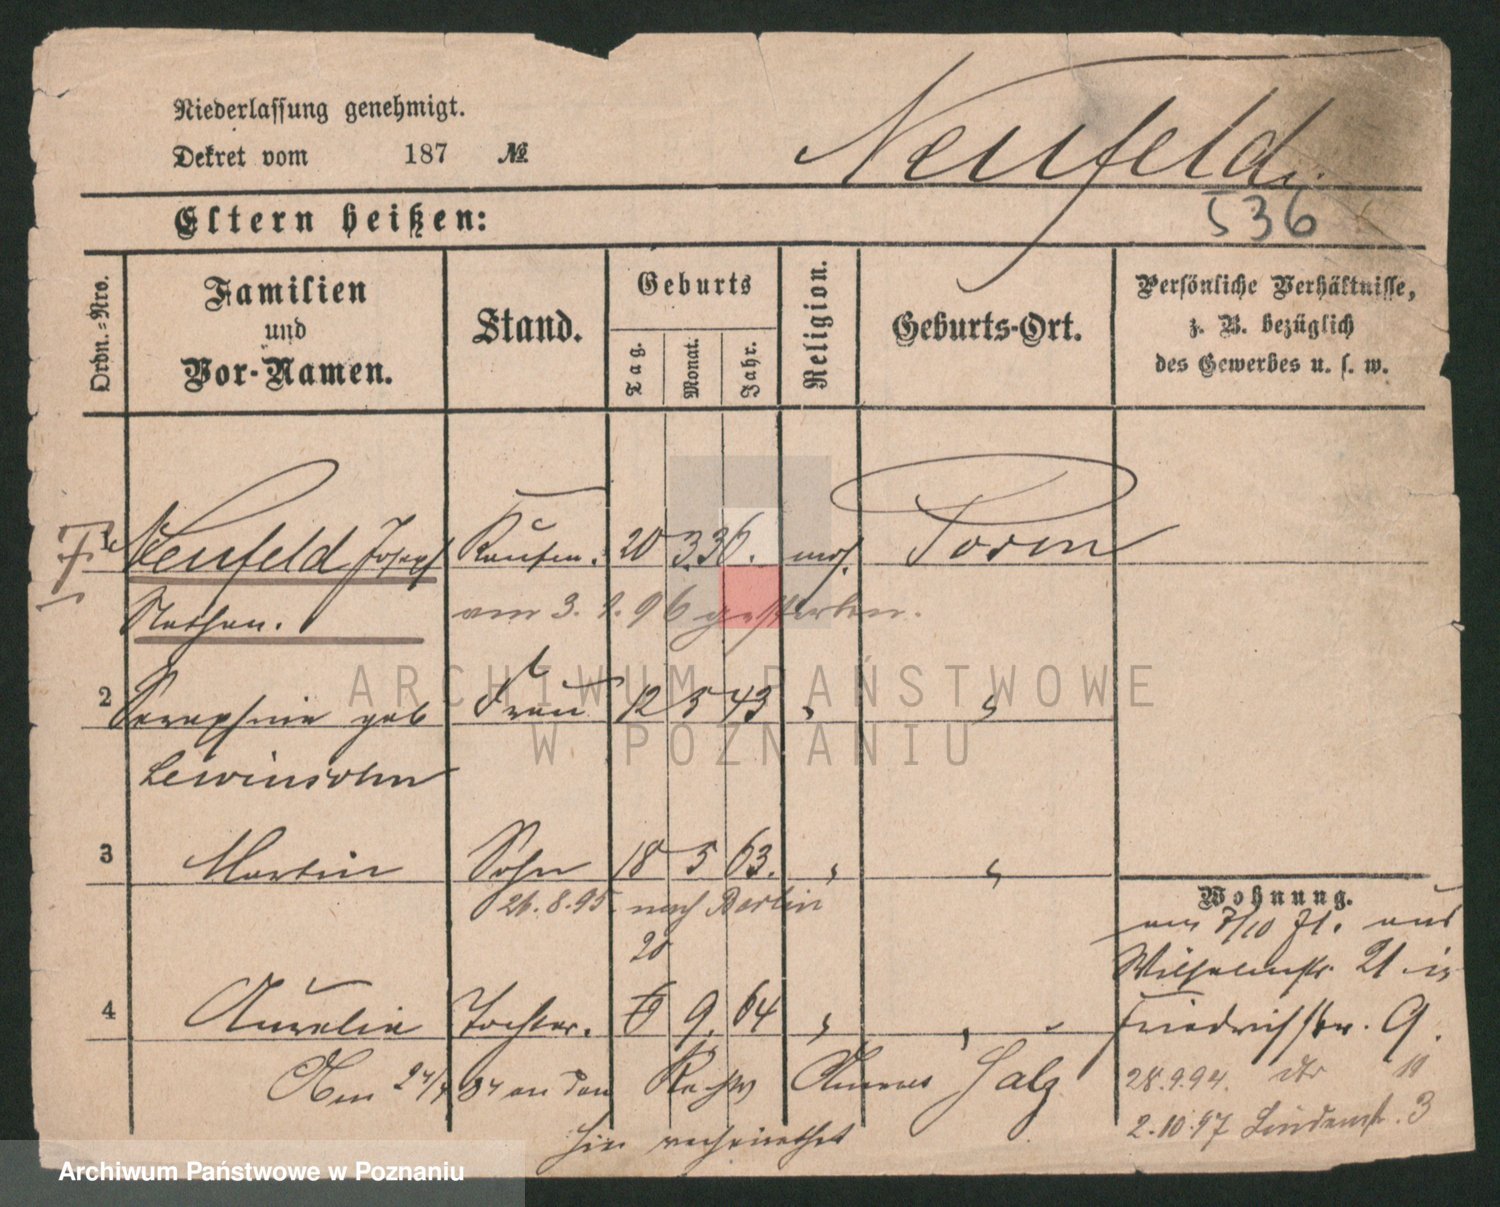 Niederlassung genehmigt.
Dekret vom 187 №
Neufeld.
Eltern heißen:
536
Ordn.-Nro.
Familien und Vor-Namen.
Stand.
Geburts
Tag.
Monat.
Jahr.
Religion.
Geburts-Ort.
Persönliche Verhältnisse,
z. B. bezüglich
des Gewerbes u. s. w.
1 Neufeld Joseph Kaufm. 20 3. 36. mos. Posen
Nathan. am 3. 1. 96 gestorben.
ARCHIWUM PAŃSTWOWE
W POZNANIU
2 Seraphine geb Frau 12 5 43 " "
Lewinsohn
3 Martin Sohn 18 5 63. " "
26.8.95. nach Berlin
Wohnung.
20
4 Aurelie Tochter. 9. 64 " "
Am 24/4 84 an den
hier verheirathet
7/10 71. aus
Wilhelmstr. 21 in
Friedrichstr. 9.
28.9.94. dto 11
2.10.97 Lindenst. 3
Archiwum Państwowe w Poznaniu